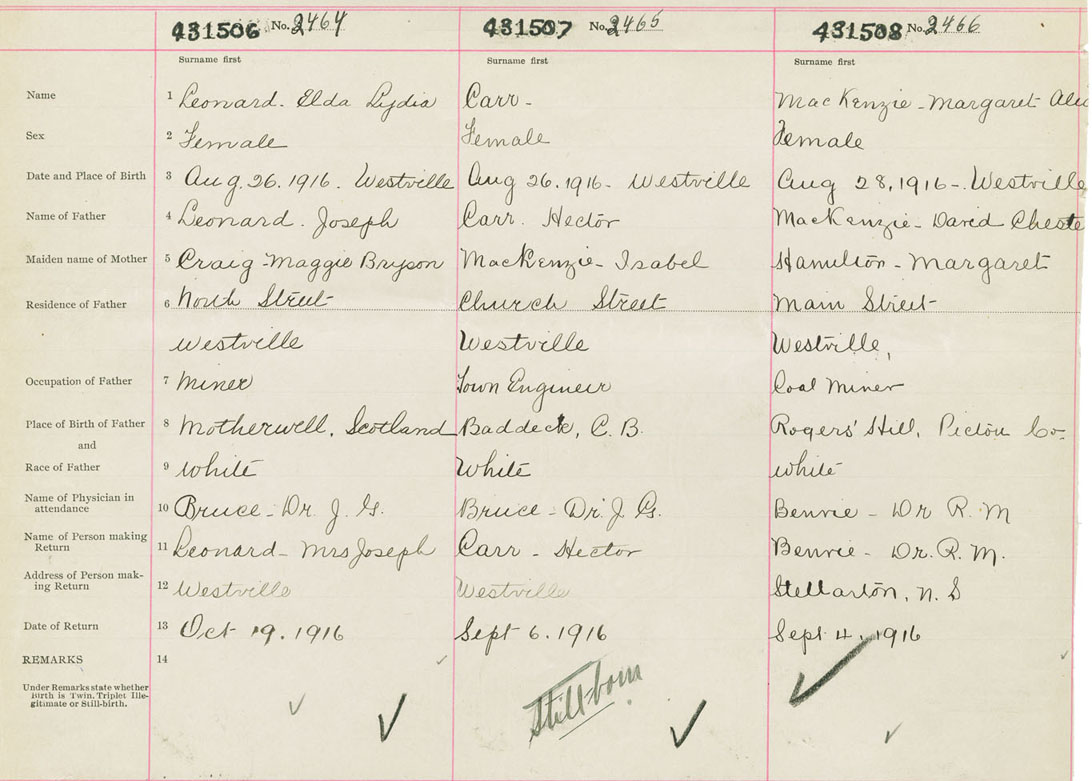 431506 No. 2464 431507 No. 2465 431508 No. 2466
Surname first Surname first Surname first
Name 1 Leonard. Elda Lydia Carr - MacKenzie - Margaret
Sex 2 Female Female Female
Date and Place of Birth 3 Aug. 26. 1916. Westville Aug 26. 1916 - Westville Aug 28, 1916 - Westville
Name of Father 4 Leonard. Joseph Carr. Hector MacKenzie - David Cheste
Maiden name of Mother 5 Craig - Maggie Bryson MacKenzie - Isabel Hamilton - Margaret
Residence of Father 6 North Street Church Street Main Street
Westville Westville Westville,
Occupation of Father 7 Miner Town Engineer Coal Miner
Place of Birth of Father 8 Motherwell, Scotland Baddeck, C. B. Rogers' Hill, Pictou Co.
and
Race of Father 9 White White White
Name of Physician in
attendance 10 Bruce - Dr. J. G. Bruce - Dr. J G. Benvie - Dr R. M
Name of Person making
Return 11 Leonard - Mrs Joseph Carr - Hector Benvie - Dr. R. M.
Address of Person mak-
ing Return 12 Westville Westville Stellarton, N. S
Date of Return 13 Oct 19. 1916 Sept 6. 1916 Sept 4. 1916
REMARKS 14
Under Remarks state whether
Birth is Twin, Triplet Ille-
gitimate or Still-birth.
Stillborn